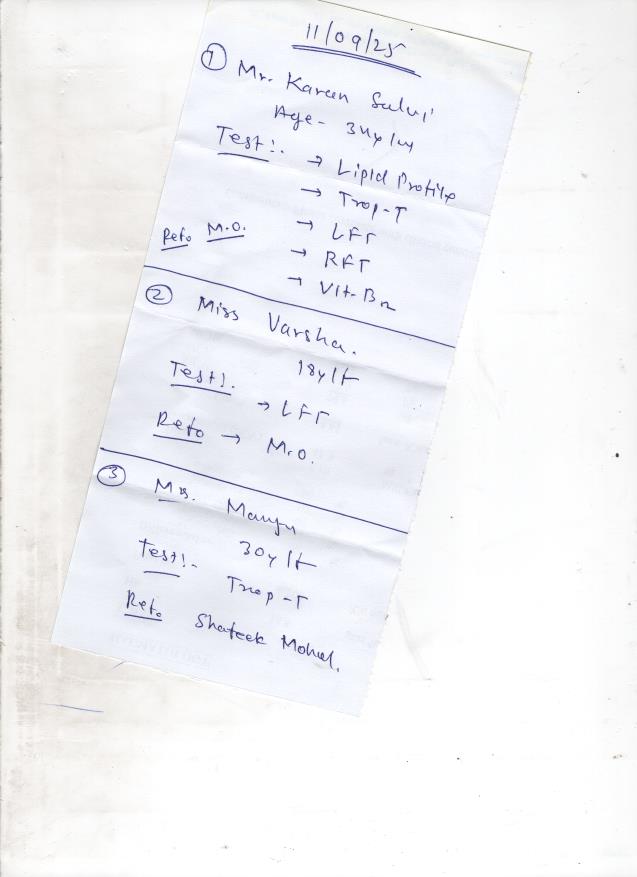 11/09/25
① Mr. Karan Salvi
Age - 34y/M
Test:- → Lipid Profile
→ Trop-T
→ LFT
Ref. M.O. → RFT
→ Vit-B12
② Miss Varsha.
18y/F
Test:- → LFT
Ref. → M.O.
③ Mrs. Manju
30y/F
Test:- Trop-T
Ref. Shateek Mohd.